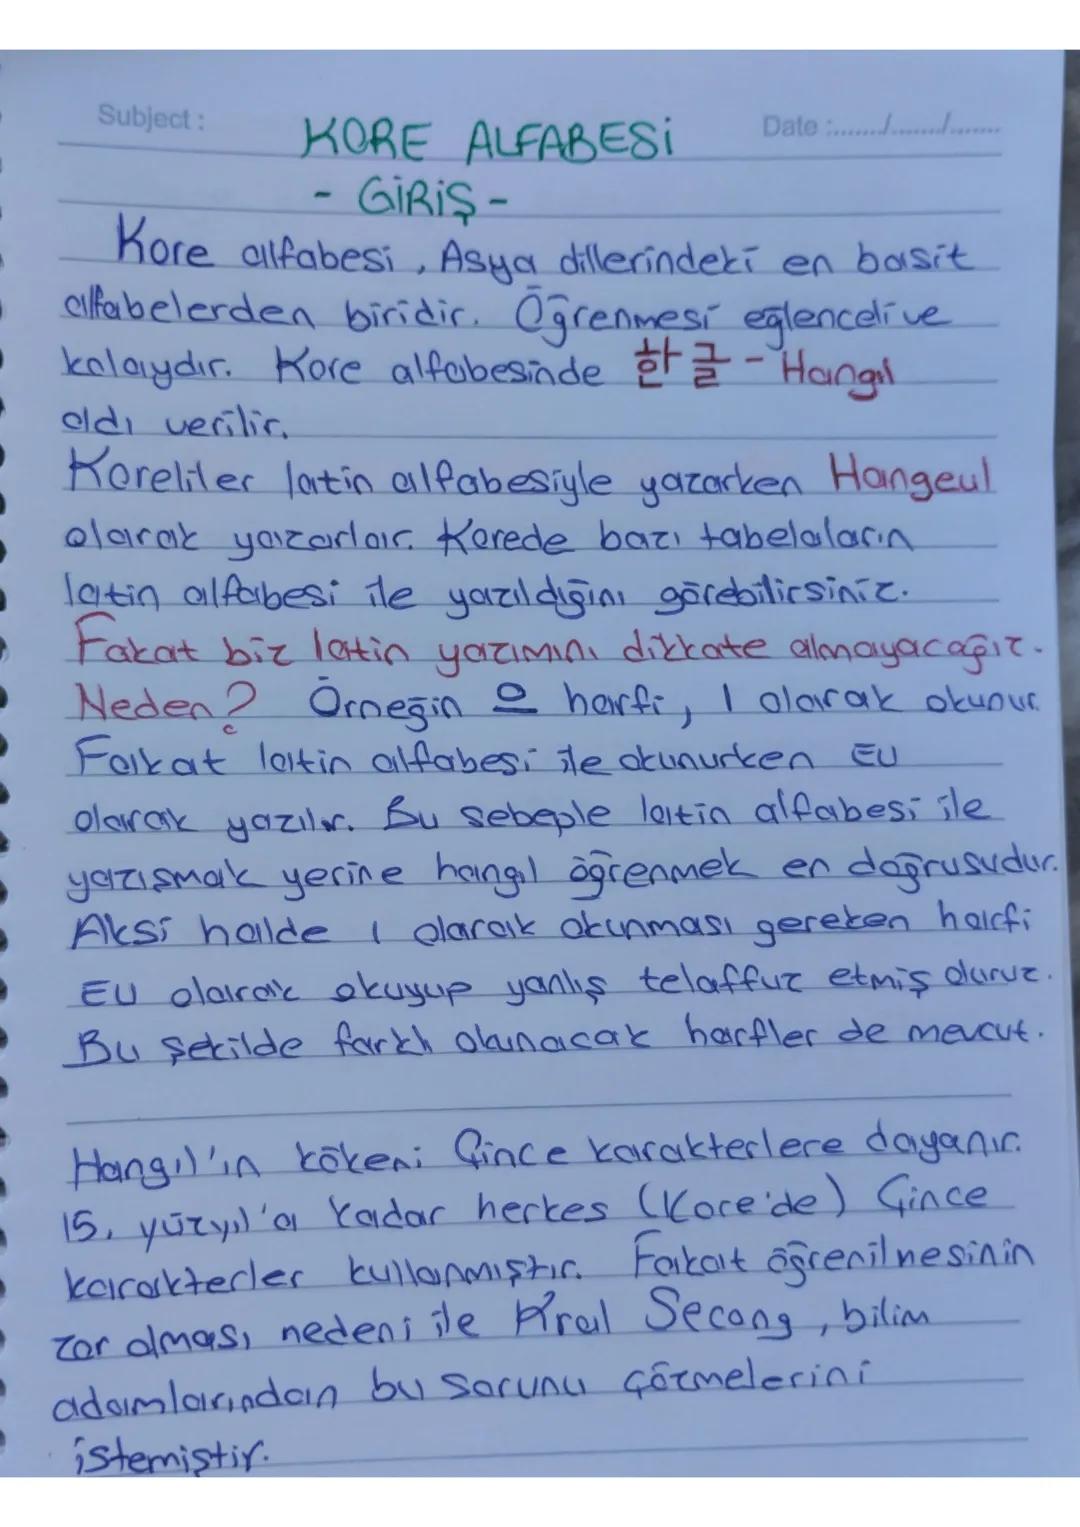 Subject:
Date :......../......../........
KORE ALFABESİ
- GİRİŞ -
Kore alfabesi, Asya dillerindeki en basit
alfabelerden biridir. Öğrenmesi eğlenceli ve
kolaydır. Kore alfabesinde 한글 - Hangıl
adı verilir.
Koreliler latin alfabesiyle yazarken Hangeul
olarak yazarlar. Korede bazı tabelaların
latin alfabesi ile yazıldığını görebilirsiniz.
Fakat biz latin yazımını dikkate almayacağız.
Neden? Örneğin 으 harfi, I olarak okunur.
Fakat latin alfabesi ile okunurken EU
olarak yazılır. Bu sebeple latin alfabesi ile
yazışmak yerine hangıl öğrenmek en doğrusudur.
Aksi halde ı olarak okunması gereken harfi
EU olarak okuyup yanlış telaffuz etmiş oluruz.
Bu şekilde farklı okunacak harfler de mevcut.
Hangıl'ın kökeni Çince karakterlere dayanır.
15. yüzyıl'a kadar herkes (Kore'de) Çince
karakterler kullanmıştır. Fakat öğrenilmesinin
zor olması nedeni ile Kral Secong, bilim
adamlarından bu sorunu çözmelerini
istemiştir.